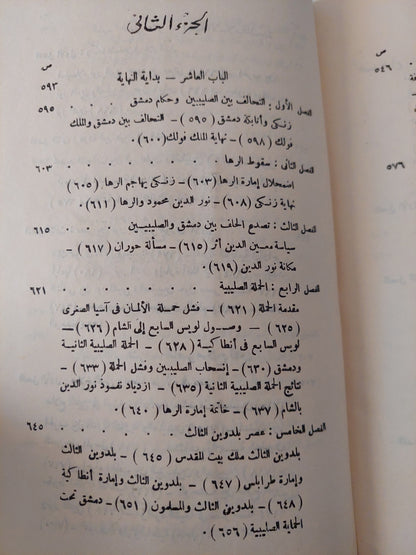 الجزء الثاني
ص
الباب العاشر — بداية النهاية
٥٩٣
الفصل الأول : التحالف بين الصليبيين وحكام دمشق . . . ٥٩٥
زنكى وأتابكة دمشق ( ٥٩٥ ) — التحالف بين دمشق والملك
فولك ( ٥٩٨ ) — نهاية الملك فولك ( ٦٠٠ ) .
الفصل الثانى : سقوط الرها . . . . . . . . ٦٠٣
اضمحلال إمارة الرها ( ٦٠٣ ) — زنكى يهاجم الرها ( ٦٠٥ )
نهاية زنكى ( ٦٠٨ ) — نور الدين محمود والرها ( ٦١١ ) .
الفصل الثالث : تصدع الحلف بين دمشق والصليبيين . . ٦١٥
سياسة معين الدين أثر ( ٦١٥ ) — مسألة حوران ( ٦١٧ ) —
مكانة نور الدين ( ٦١٩ ) .
الفصل الرابع : الحملة الصليبية . . . . . . . ٦٢١
مقدمة الحملة ( ٦٢١ ) — فشل حملة الألمان فى آسيا الصغرى
( ٦٢٥ ) — وصول لويس السابع إلى الشام ( ٦٢٦ ) —
لويس السابع فى أنطاكية ( ٦٢٨ ) — الحملة الصليبية الثانية
ودمشق ( ٦٣٠ ) — إنسحاب الصليبين وفشل الحملة ( ٦٣٣ ) —
نتائج الحملة الصليبية الثانية ( ٦٣٥ ) — ازدياد نفوذ نور الدين
بالشام ( ٦٣٧ ) — خاتمة إمارة الرها ( ٦٤٠ ) .
الفصل الخامس : عصر بلدوين الثالث . . . . . ٦٤٥
بلدوين الثالث ملك بيت المقدس ( ٦٤٥ ) — بلدوين الثالث
وإمارة طرابلس ( ٦٤٧ ) — بلدوين الثالث وإمارة أنطاكية
( ٦٤٨ ) — بلدوين الثالث والمسلمون ( ٦٥١ ) — دمشق تحت
الحماية الصليبية ( ٦٥٦ ) .
ص
٥٤٦
٥٧٦